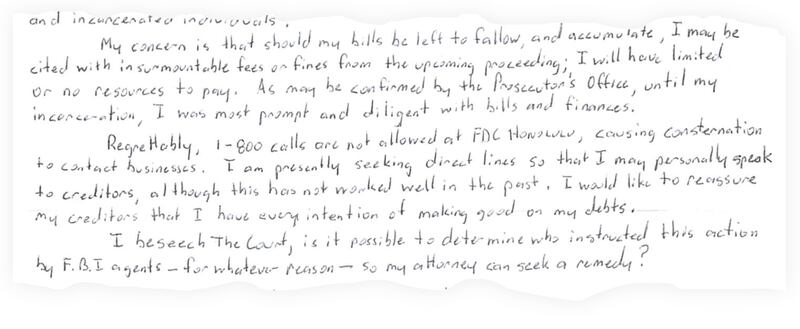 and incarcerated individuals.
My concern is that should my bills be left to fallow, and accumulate, I may be
cited with insurmountable fees or fines from the upcoming proceeding; I will have limited
or no resources to pay. As may be confirmed by the Prosecutor's Office, until my
incarceration, I was most prompt and diligent with bills and finances.
Regrettably, 1-800 calls are not allowed at FDC Honolulu, causing consternation
to contact businesses. I am presently seeking direct lines so that I may personally speak
to creditors, although this has not worked well in the past. I would like to reassure
my creditors that I have every intention of making good on my debts.
I beseech The Court, is it possible to determine who instructed this action
by F.B.I agents – for whatever reason – so my attorney can seek a remedy?